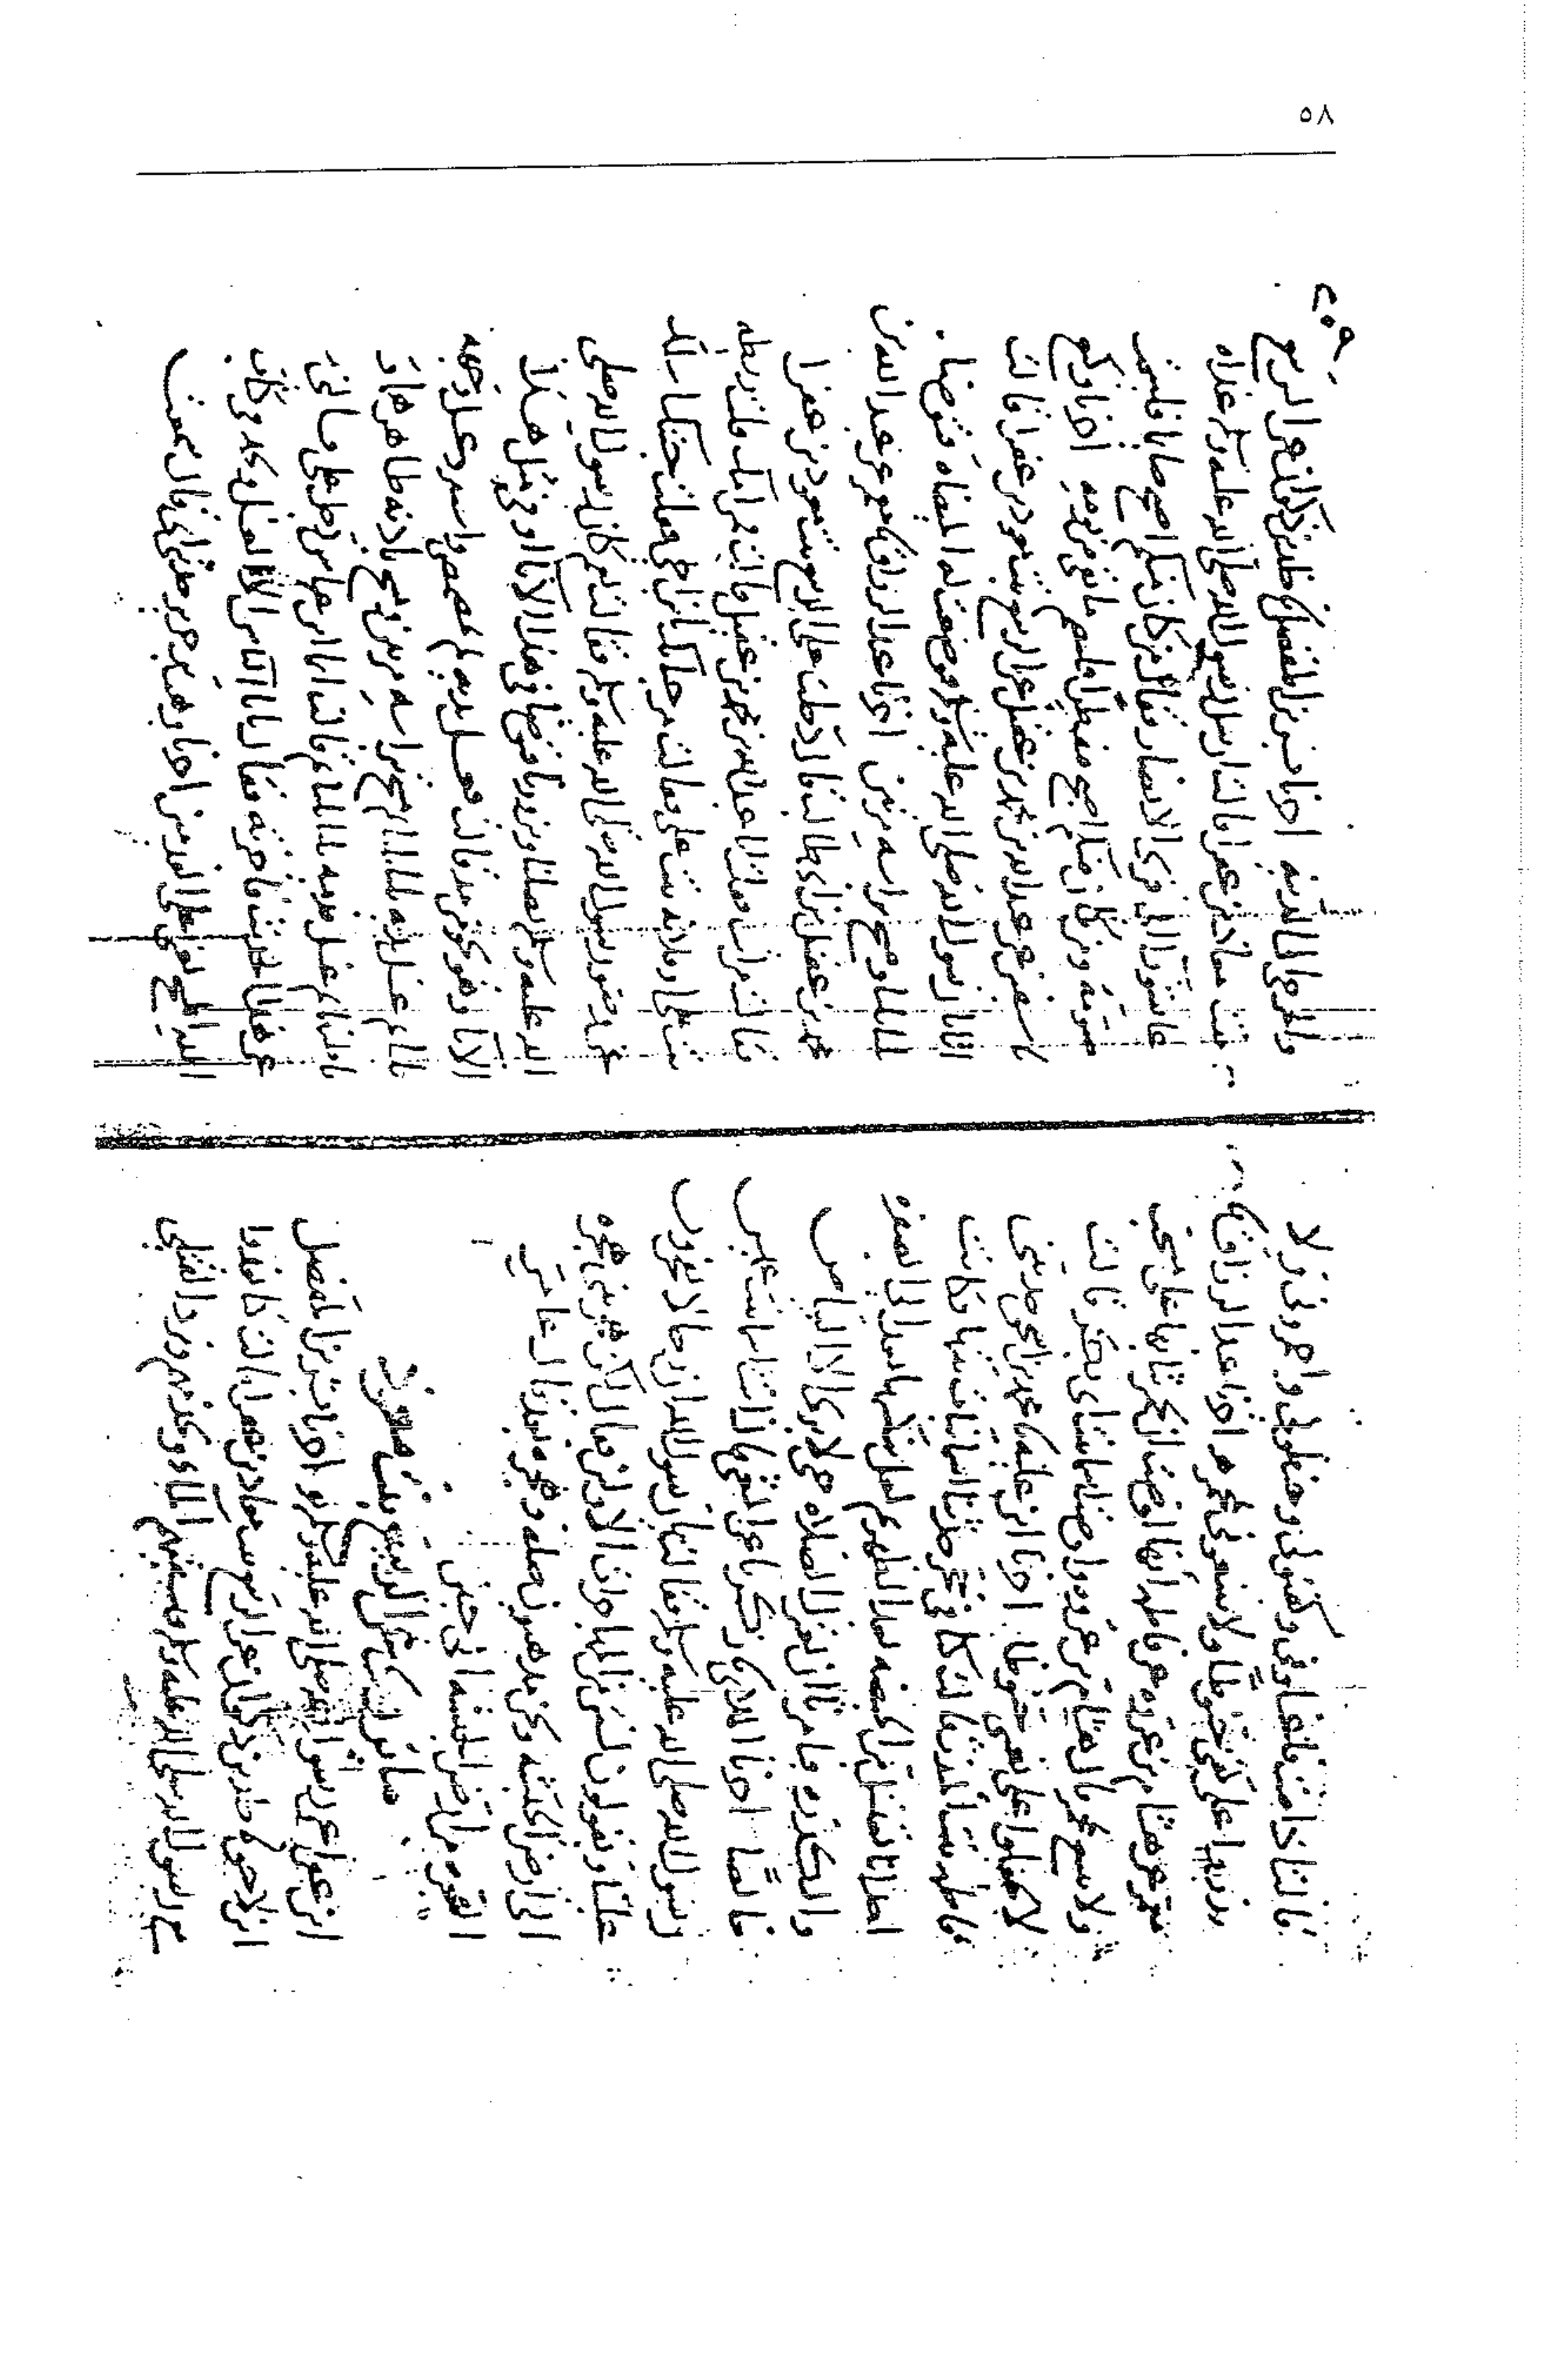 ٥٨
قالت اذا مت فاغسلوني وكفنوني وحنطوني واجمروني ولا
تذروا على كفني حنوطا ولا تتبعوني بمجمر اخبرنا عبد الرزاق نا
معمر عن هشام بن عروه عن فاطمه انها اوصت ان تجمر ثيابها على مشجب
ولا تتبع بمجمر قال هشام بن عروه واوصت اسماء قالت
لا تجعلوا على نعشي حنوطا اخبرنا ابن عليه نا محمد بن اسحق حدثتني
فاطمه بنت المنذر قالت كنا في حجر جدتنا اسما بنات بنتها فكانت
احدانا تغتسل من الحيضه بعد الطهر ثم لعل ينكسها بعد الى الصفره
والكدره فتامرنا ان نعتزل الصلاه حتى لا نرى الا البياض
خالصا اخبرنا الملائي نا زكريا عن الشعبي قال قالت اسما بنت عميس
لرسول الله صلى الله عليه وسلم فقالت يا رسول الله ان رجالا يفخرون
علينا ويقولون لسنا من المهاجرات الاولين فقال لكن هجرتين هجره
الى ارض الحبشه ونحن مرهنون بمكه وهجره بعد ذلك قال عامر
الهجره من ارض الحبشه الى خيبر
ما يروى عن الربيع بنت معوذ
ابن عفرا عن رسول الله صلى الله عليه وسلم اخبرنا بشر بن المفضل
ابن لاحق نا خالد بن ذكوان عن الربيع بنت معوذ بن عفرا قالت كنا نغزوا
مع رسول الله صلى الله عليه وسلم فنسقيهم الماء ونخدمهم ونرد القتلى
٢٠٩
والجرحى الى المدينه اخبرنا بشر بن المفضل نا خالد بن ذكوان عن الربيع
بنت معوذ بن عفرا قالت ارسل رسول الله صلى الله عليه وسلم غداه
عاشورا الى قرى الانصار فقال من كان منكم اصبح صائما فليتم
صومه ومن كان منكم اصبح مفطرا فليصم ما بقي من يومه اخبرنا وكيع
نا سفين عن عبد الله بن محمد بن عقيل عن الربيع بنت معوذ بن عفرا قالت
اتانا رسول الله صلى الله عليه وسلم فوضعت له الميضاه فتوضا
ثلثا ومسح براسه مرتين اخبرنا عبد الرزاق نا معمر عن عبد الله بن
محمد بن عقيل بن ابي طالب قال دخلت على الربيع بنت معوذ بن عفرا
فقالت من انت فقلت انا عبد الله بن محمد بن عقيل قالت فمن امك قلت ريطه
بنت علي او فلانه بنت علي فقالت مرحبا بك يا ابن اخي فقلت جئتك اسالك
عن وضوء رسول الله صلى الله عليه وسلم فقالت نعم كان رسول الله صلى
الله عليه وسلم يصلنا ويزورنا فتوضا في هذا الاناء او في مثل هذا
الاناء وهو نحو من مد قالت فغسل يديه ثم مضمض واستنثر وغسل وجهه
ثلثا ثم غسل يديه ثلثا ثلثا ثم مسح براسه مرتين ومسح باذنيه ظاهرهما و
باطنهما ثم غسل قدميه ثلثا ثلثا ثم قالت اما ابن عباس قد دخل علي فسالني
عن هذا الحديث فاخبرته فقال يابى الناس الا الغسل ونجد في كتاب
الله المسح يعني على القدمين اخبرنا وهب بن جرير حدثني ابي قال سمعت